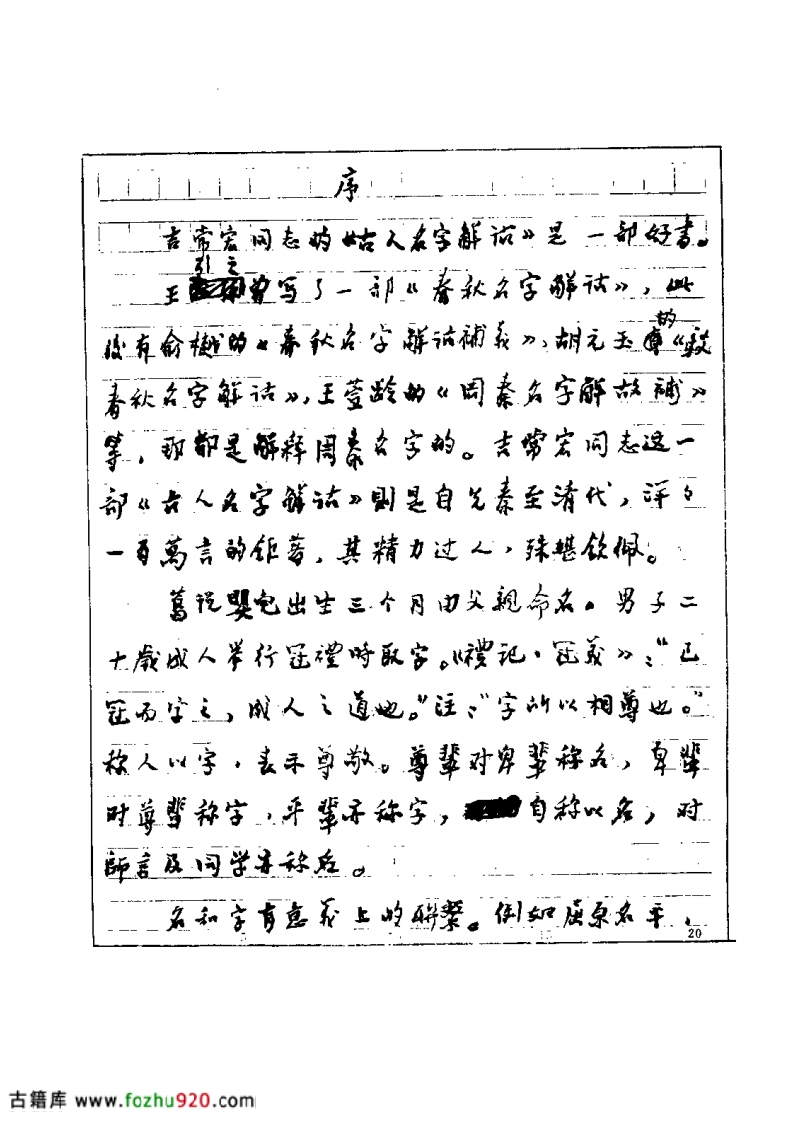 序
吉常宏同志的《古人名字解诂》是一部好書。
引之
王曾写了一部《春秋名字解诂》,此
的
後有俞樾的《春秋名字解诂補義》,胡元玉《駁
春秋名字解诂》,王萱龄的《周秦名字解故補》
等,那都是解释周秦名字的。吉常宏同志这一
部《古人名字解诂》則是自先秦至清代,洋々
一百萬言的鉅著,其精力过人,殊堪钦佩。
嬰兒出生三个月由父親命名。男子二
十歲成人举行冠禮時取字。《禮記·冠義》:“已
冠而字之,成人之道也。”注:“字所以相尊也。”
称人以字,表示尊敬。尊輩对卑輩称名,卑輩
对尊輩称字,平輩亦称字,自称以名,对
師言及同学亦称名。
名和字有意義上的联繫。例如屈原名平,
20
古籍库 www.fozhu920.com